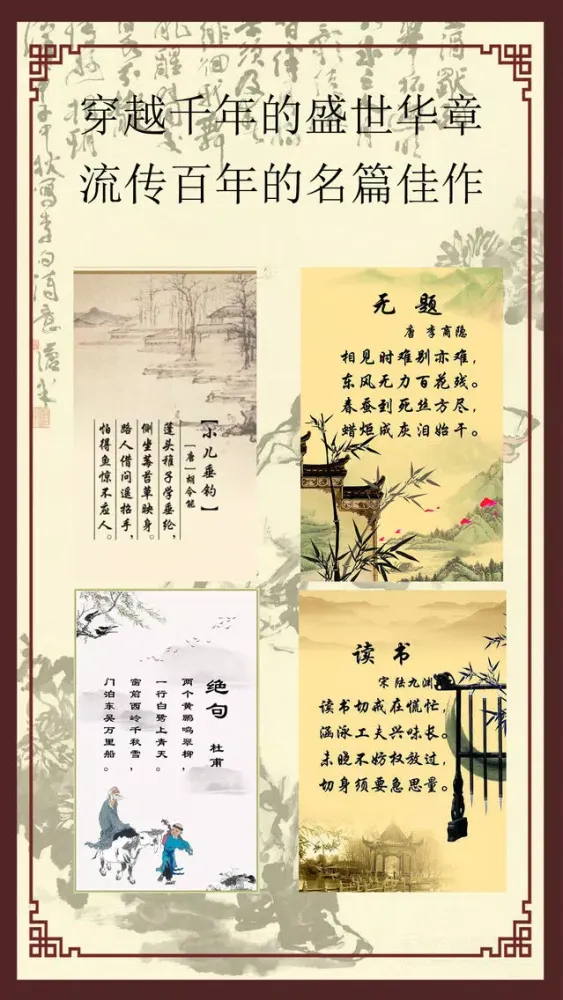 穿越千年的盛世华章
流传百年的名篇佳作
【小儿垂钓】
[唐]胡令能
蓬头稚子学垂纶，
侧坐莓苔草映身。
路人借问遥招手，
怕得鱼惊不应人。
无题
唐 李商隐
相见时难别亦难，
东风无力百花残。
春蚕到死丝方尽，
蜡炬成灰泪始干。
绝句
杜甫
两个黄鹂鸣翠柳，
一行白鹭上青天。
窗前西岭千秋雪，
门泊东吴万里船。
读书
宋 陆九渊
读书切戒在慌忙，
涵泳工夫兴味长。
未晓不妨权放过，
切身须要急思量。